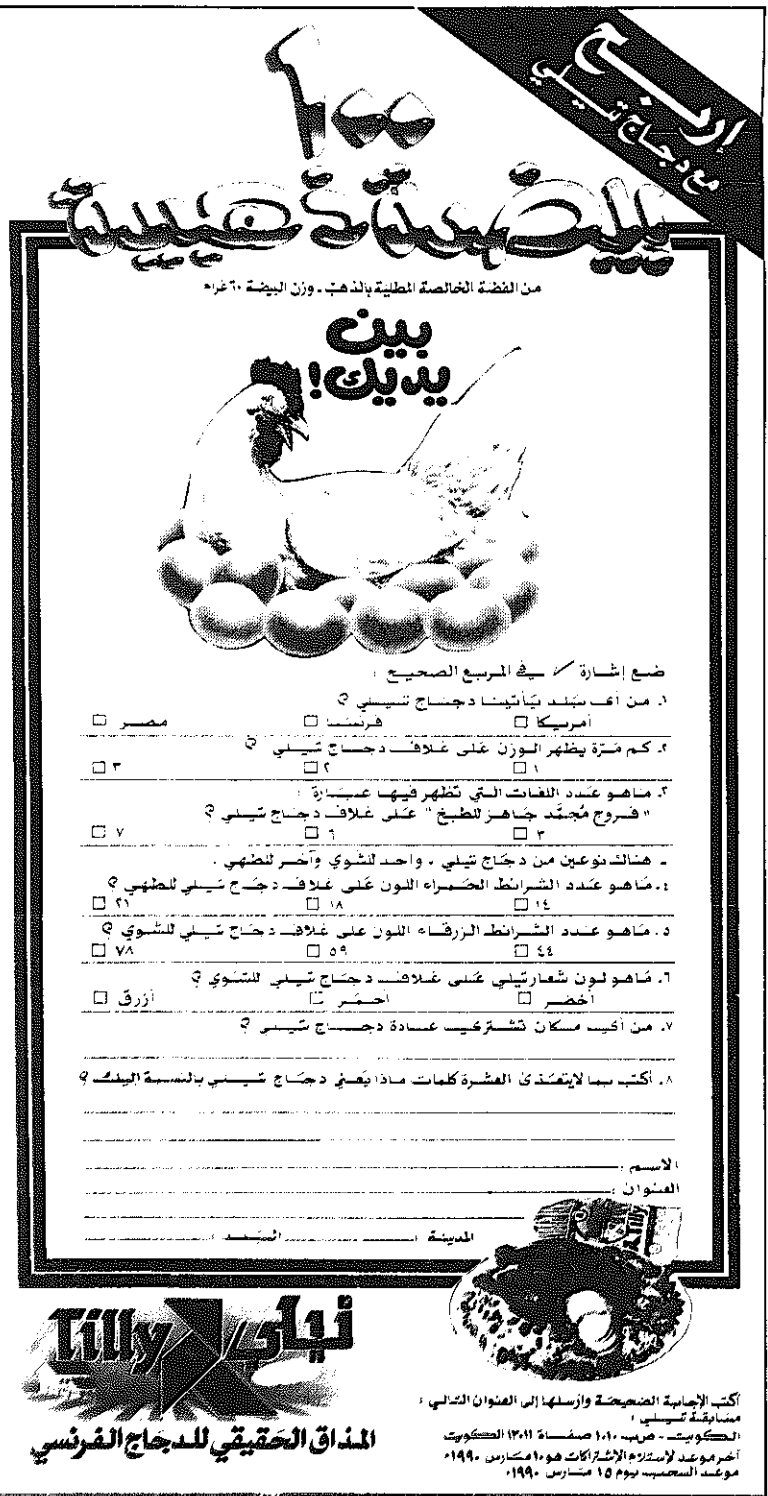 إربح
مع دجاج تيلي
١٠٠
بيضة ذهبية
من الفضة الخالصة المطلية بالذهب - وزن البيضة ٦٠ غرام
بين
يديك!
ضع إشارة ✓ في المربع الصحيح :
١. من أي بلد يأتينا دجاج تيلي ؟
أمريكا □ فرنسا □ مصر □
٢. كم مرة يظهر الوزن على غلاف دجاج تيلي ؟
١ □ ٢ □ ٣ □
٣. ماهو عدد اللغات التي تظهر فيها عبارة :
" فروج مُجمَّد جاهز للطبخ " على غلاف دجاج تيلي ؟
٣ □ ٦ □ ٧ □
- هناك نوعين من دجاج تيلي ، واحد للشوي وآخر للطهي .
٤. ماهو عدد الشرائط الحمراء اللون على غلاف دجاج تيلي للطهي ؟
١٤ □ ١٨ □ ٢١ □
٥. ماهو عدد الشرائط الزرقاء اللون على غلاف دجاج تيلي للشوي ؟
٤٤ □ ٥٩ □ ٧٨ □
٦. ماهو لون شعار تيلي على غلاف دجاج تيلي للشوي ؟
أخضر □ احمر □ أزرق □
٧. من أي مكان تشتري عادة دجاج تيلي ؟
٨. أكتب بما لايتعدى العشرة كلمات ماذا يعني دجاج تيلي بالنسبة اليك ؟
الاسم :
العنوان :
المدينة : البلد :
Tilly تيلي
المذاق الحقيقي للدجاج الفرنسي
Tilly
أكتب الإجابة الصحيحة وأرسلها إلى العنوان التالي :
مسابقة تيلي :
الكويت - ص.ب ١٠١٠ صفاة ١٣٠١١ الكويت
آخر موعد لإستلام الإشتراكات هو ١٠ مارس ١٩٩٠
موعد السحب يوم ١٥ مارس ١٩٩٠